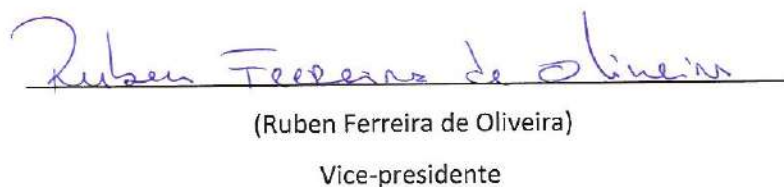 Ruben Ferreira de Oliveira
(Ruben Ferreira de Oliveira)
Vice-presidente